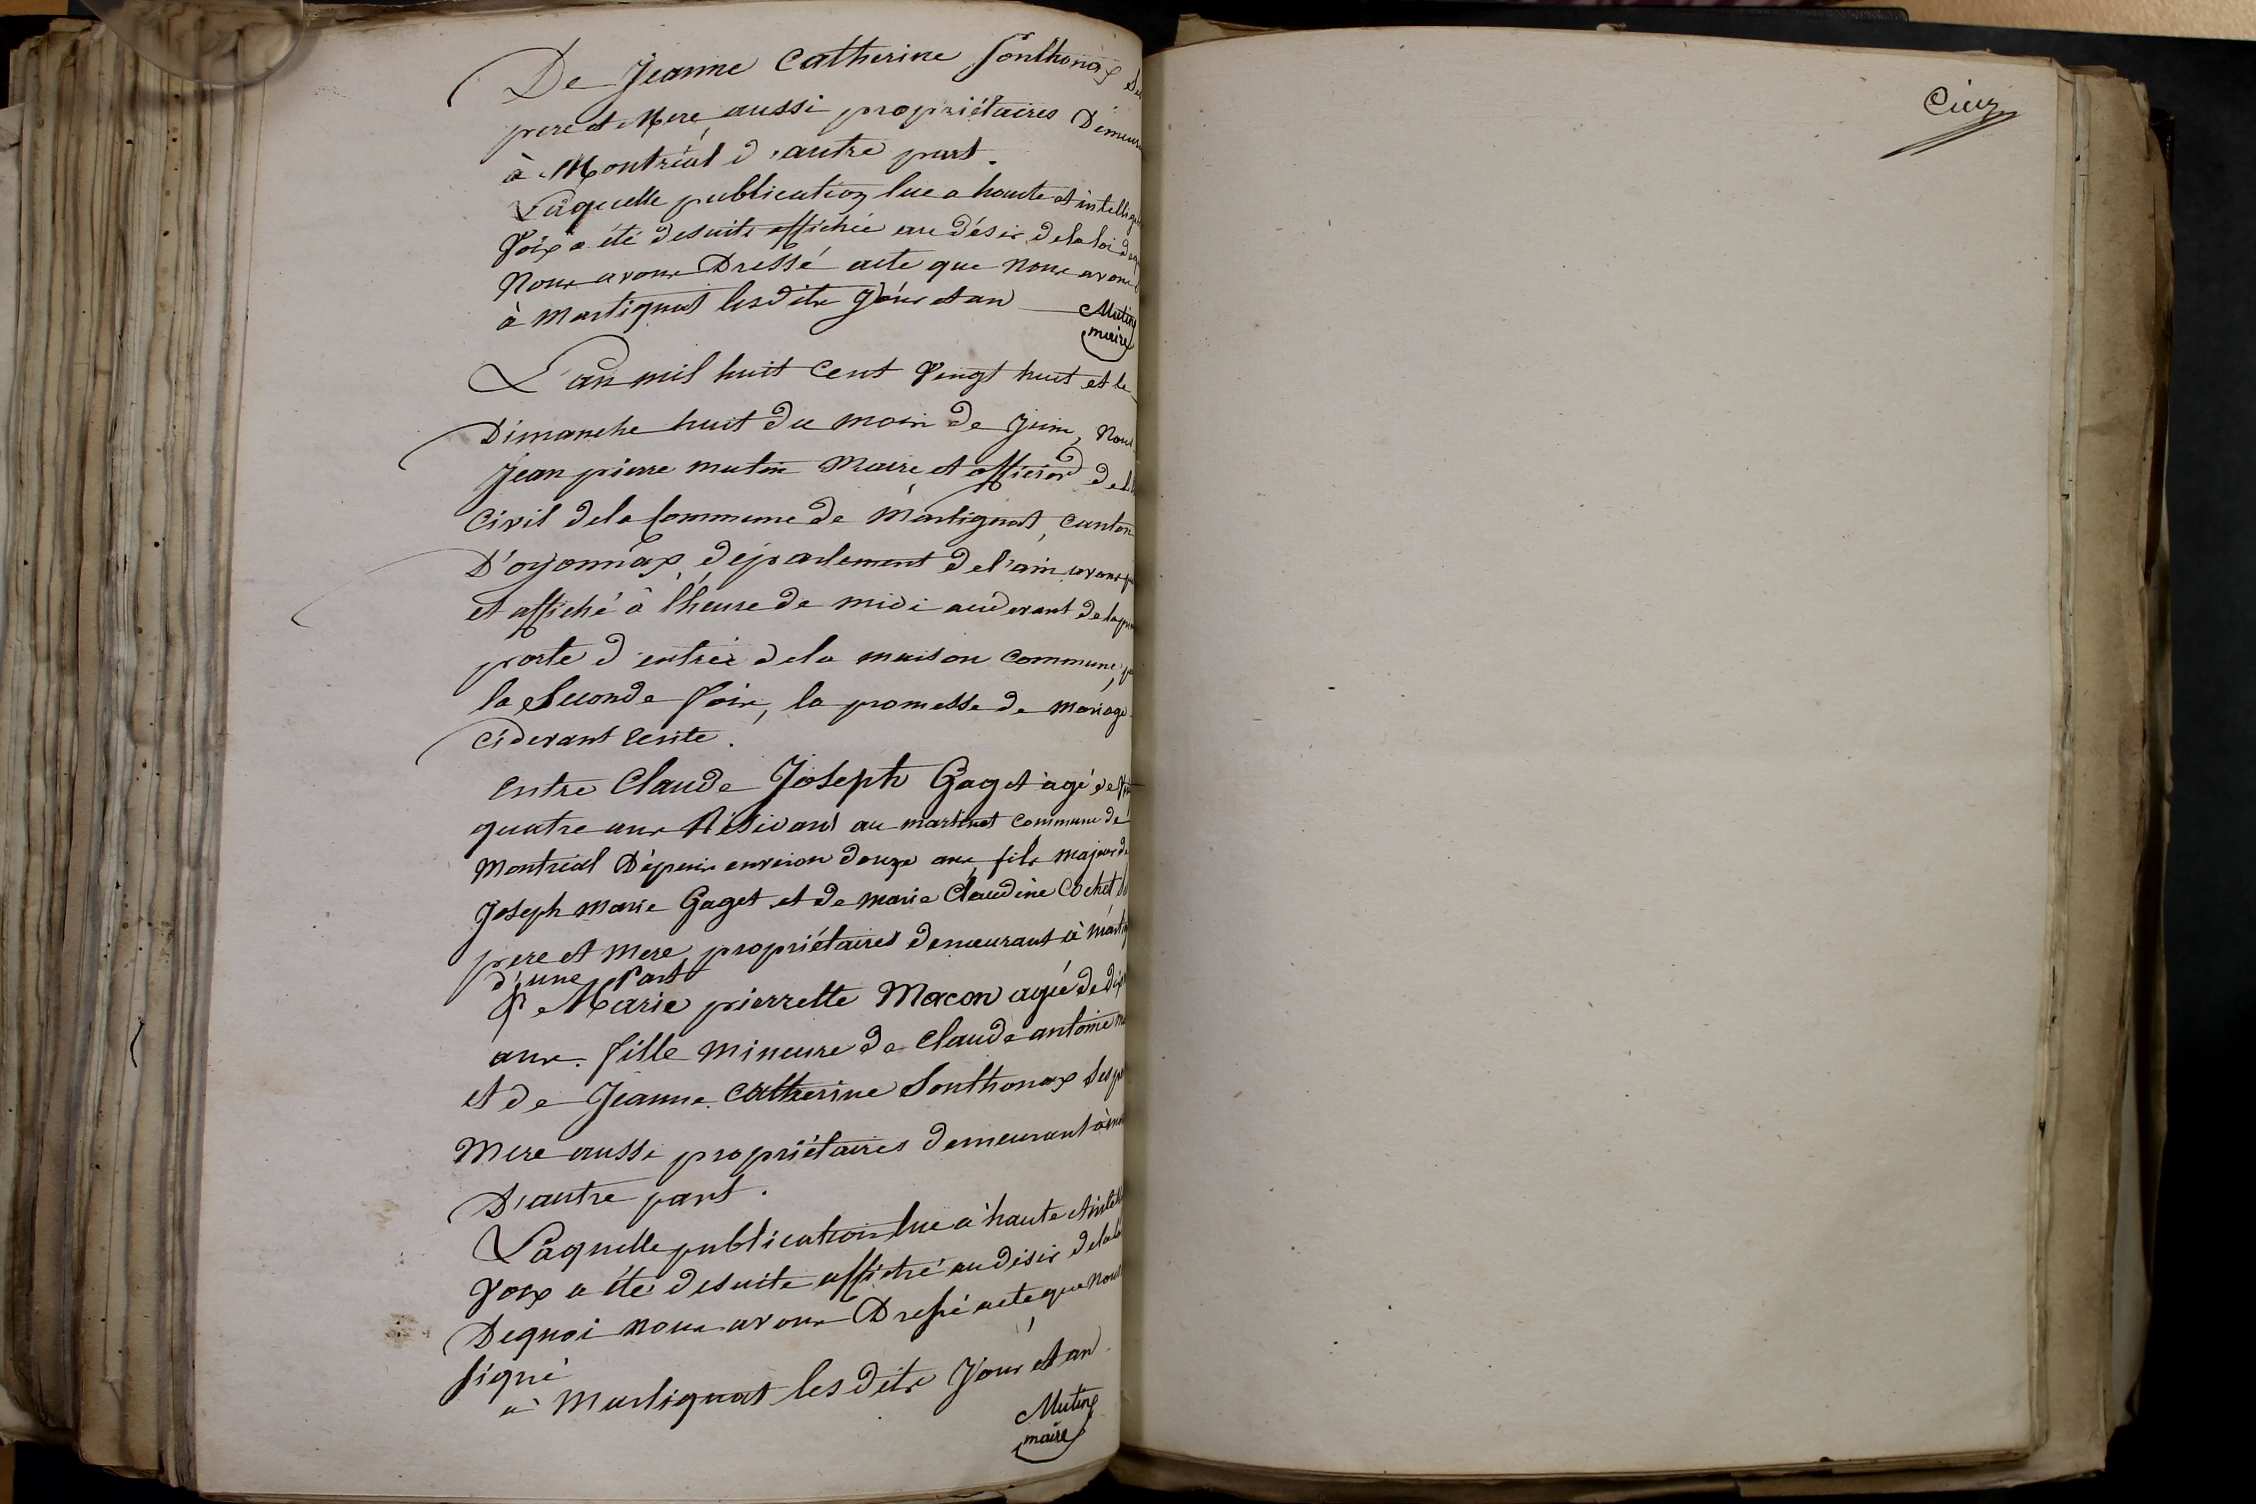 De Jeanne Catherine Sonthonax Ses
pere et Mere, aussi propriétaires Demeur
à Montréal d'autre part.
Laquelle publication lue a haute et intellig
Voix a été desuite affichée au désir dela loi
Nous avons Dressé acte que Nous avons
à Martignat lesdits Jour et an
Mutin
maire
L'an mil huit Cent Vingt huit et le
Dimanche huit du mois de Juin, Nous
Jean pierre mutin Maire et officier del
Civil dela Commune de Martignat, canton
D'oyonnax, département del'ain avons
et affiché à l'heure de midi audevant dela
porte d'entrée dela maison Commune,
la Seconde fois, la promesse de mariage
Cidevant Ecrite.
Entre Claude Joseph Gaget agé de
quatre ans Résidant au martinet commune de
Montréal Depuis environ douze ans, fils majeur de
Joseph marie Gaget et de marie Claudine Cochet
pere et Mere, propriétaires demeurant à marti
d'une Part
Et Marie pierrette Macon agée de dix
ans. fille mineure de Claude antoine
et de Jeanne Catherine Sonthonax Ses
Mere aussi propriétaires demeurant à
D'autre part.
Laquelle publication lue a haute et intell
Voix a été desuite affiché au désir dela
Dequoi nous avons Dressé acte, que nous
signé
à Martignat lesdits Jour et an.
Mutin
maire